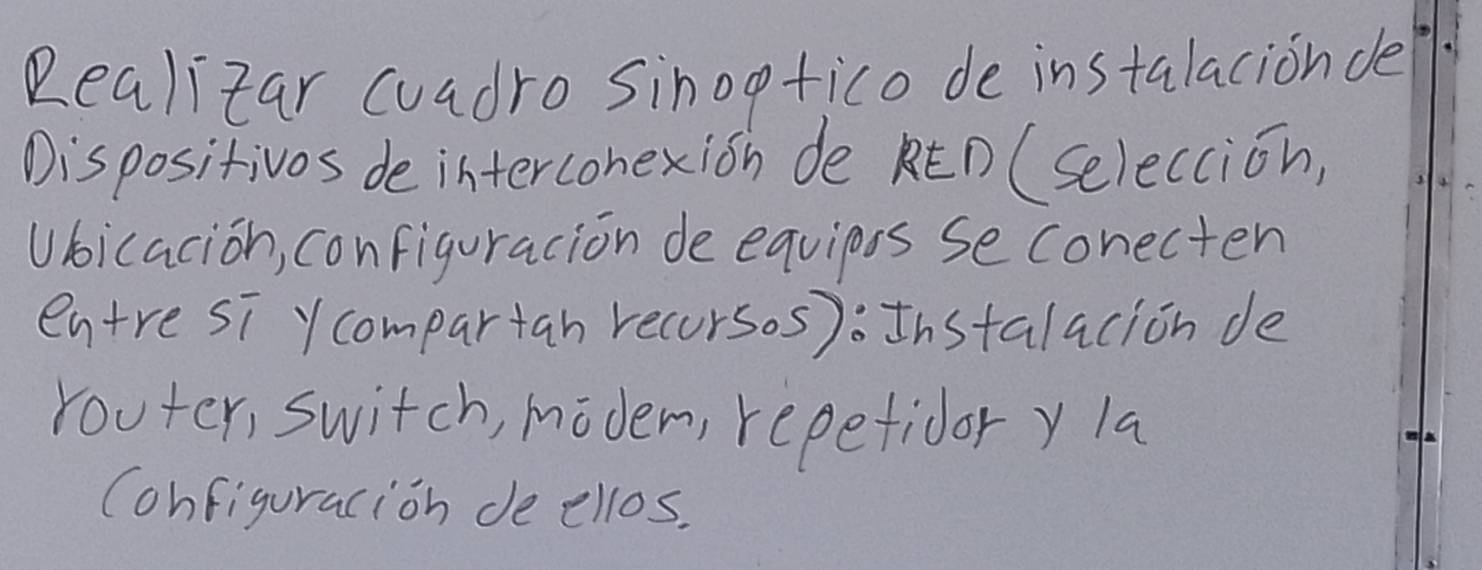 Realizar cuadro sinoptico de instalación de
Dispositivos de interconexión de RED (selección,
Ubicación, configuración de equipos se conecten
entre sí y compartan recursos): Instalación de
router, switch, módem, repetidor y la
Configuración de ellos.